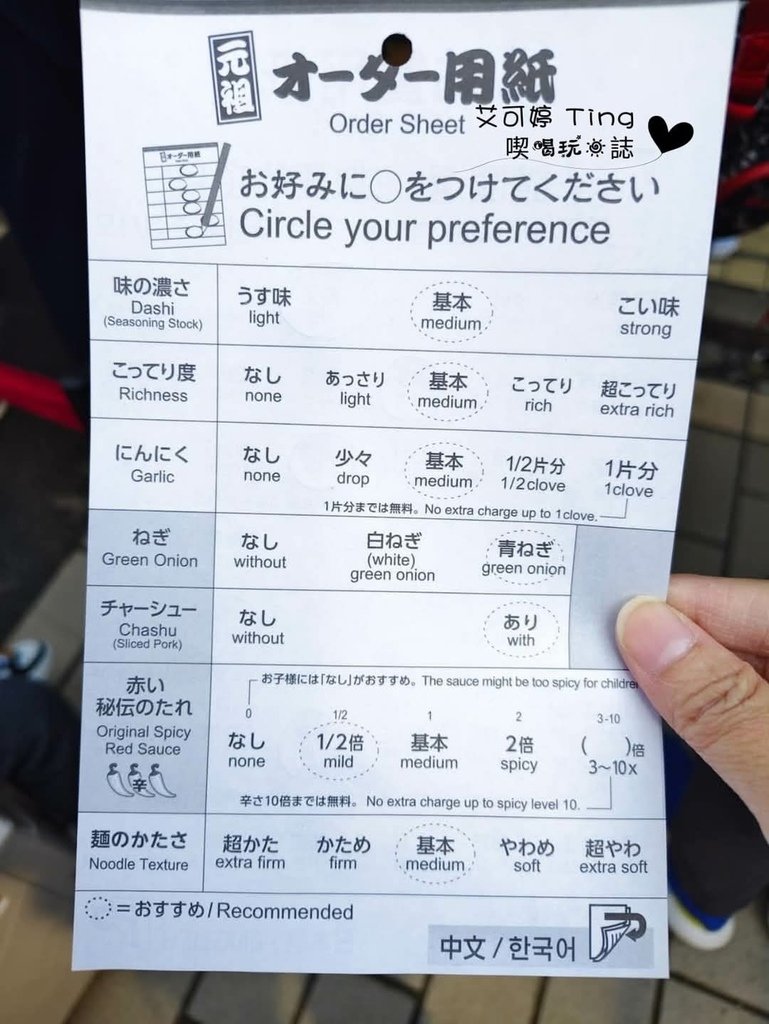 元祖 オーダー用紙
Order Sheet
艾可婷 Ting
喫喝玩樂誌
オーダー用紙
お好みに○をつけてください
Circle your preference
味の濃さ うす味 基本 こい味
Dashi light medium strong
(Seasoning Stock)
こってり度 なし あっさり 基本 こってり 超こってり
Richness none light medium rich extra rich
にんにく なし 少々 基本 1/2片分 1片分
Garlic none drop medium 1/2clove 1clove
1片分までは無料。No extra charge up to 1clove.
ねぎ なし 白ねぎ 青ねぎ
Green Onion without (white) green onion
green onion
チャーシュー なし あり
Chashu without with
(Sliced Pork)
お子様には「なし」がおすすめ。The sauce might be too spicy for children
赤い
秘伝のたれ
Original Spicy
Red Sauce
辛
0 1/2 1 2 3-10
なし 1/2倍 基本 2倍 ( )倍
none mild medium spicy 3～10x
辛さ10倍までは無料。No extra charge up to spicy level 10.
麺のかたさ 超かた かため 基本 やわめ 超やわ
Noodle Texture extra firm firm medium soft extra soft
=おすすめ/Recommended
中文 / 한국어